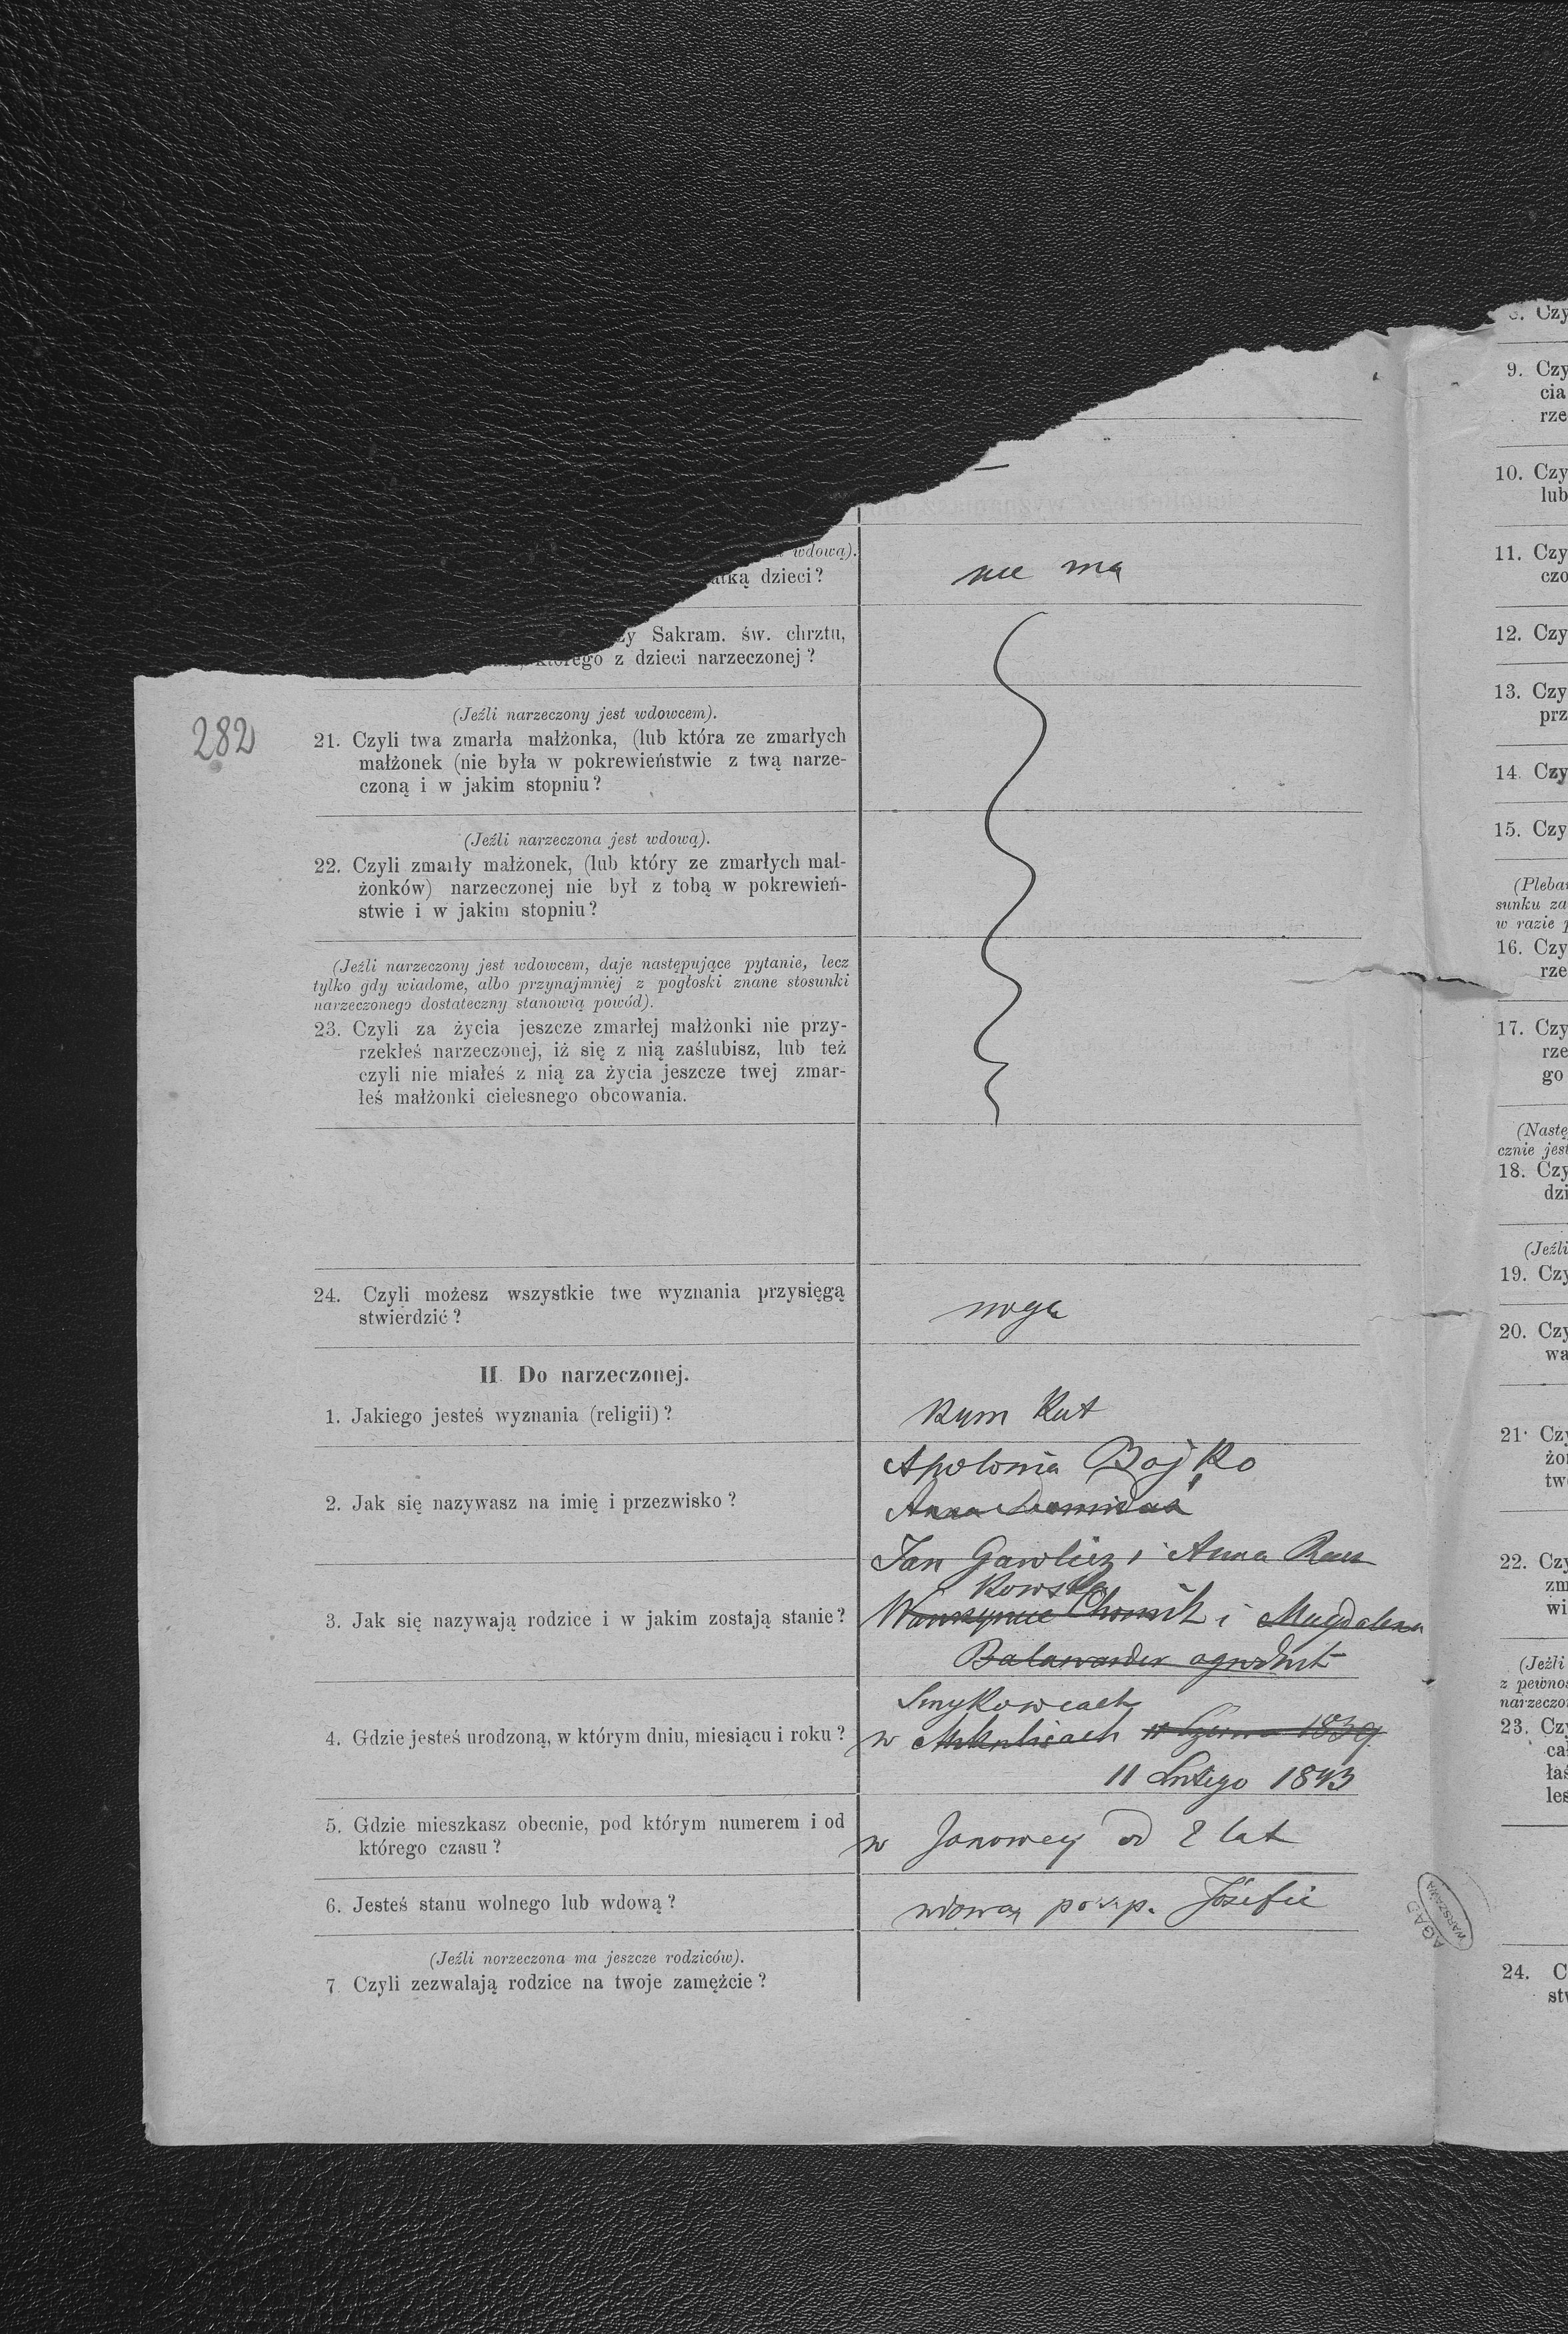 wdową).
atką dzieci?
nie ma
zy Sakram. św. chrztu,
którego z dzieci narzeczonej?
282
(Jeźli narzeczony jest wdowcem).
21. Czyli twa zmarła małżonka, (lub która ze zmarłych
małżonek (nie była w pokrewieństwie z twą narze-
czoną i w jakim stopniu?
(Jeźli narzeczona jest wdową).
22. Czyli zmarły małżonek, (lub który ze zmarłych mał-
żonków) narzeczonej nie był z tobą w pokrewień-
stwie i w jakim stopniu?
(Jeźli narzeczony jest wdowcem, daje następujące pytanie, lecz
tylko gdy wiadome, albo przynajmniej z pogłoski znane stosunki
narzeczonego dostateczny stanowią powód).
23. Czyli za życia jeszcze zmarłej małżonki nie przy-
rzekłeś narzeczonej, iż się z nią zaślubisz, lub też
czyli nie miałeś z nią za życia jeszcze twej zmar-
łeś małżonki cielesnego obcowania.
24. Czyli możesz wszystkie twe wyznania przysięgą
stwierdzić?
mogę
II Do narzeczonej.
1. Jakiego jesteś wyznania (religii)?
Rzym Kat
2. Jak się nazywasz na imię i przezwisko?
Apolonia Bojko
Anna
3. Jak się nazywają rodzice i w jakim zostają stanie?
Jan Gawlicz i Anna Rau
kowska
Wawrzyniec Chomik i Magdalena
4. Gdzie jesteś urodzoną, w którym dniu, miesiącu i roku?
Smykowcach
w 1839
11 Lutego 1843
5. Gdzie mieszkasz obecnie, pod którym numerem i od
którego czasu?
w Janowej od 2 lat
6. Jesteś stanu wolnego lub wdową?
wdową po śp. Józefie
(Jeźli norzeczona ma jeszcze rodziców).
7 Czyli zezwalają rodzice na twoje zamężcie?
8. Czy
9. Czy
cia
rze
10. Czy
lub
11. Czy
czo
12. Czy
13. Czy
prz
14. Czy
15. Czy
(Pleban
sunku za
w razie p
16. Czy
rze
17. Czy
rze
go
(Nastę
cznie jest
18. Czy
dzi
(Jeźli
19. Czy
20. Czy
wa
21. Czy
żon
tw
22. Czy
zm
wi
(Jeźli
z pewnoś
narzeczo
23. Czy
ca
łaś
les
AGAD
WARSZAWA
24. C
stw